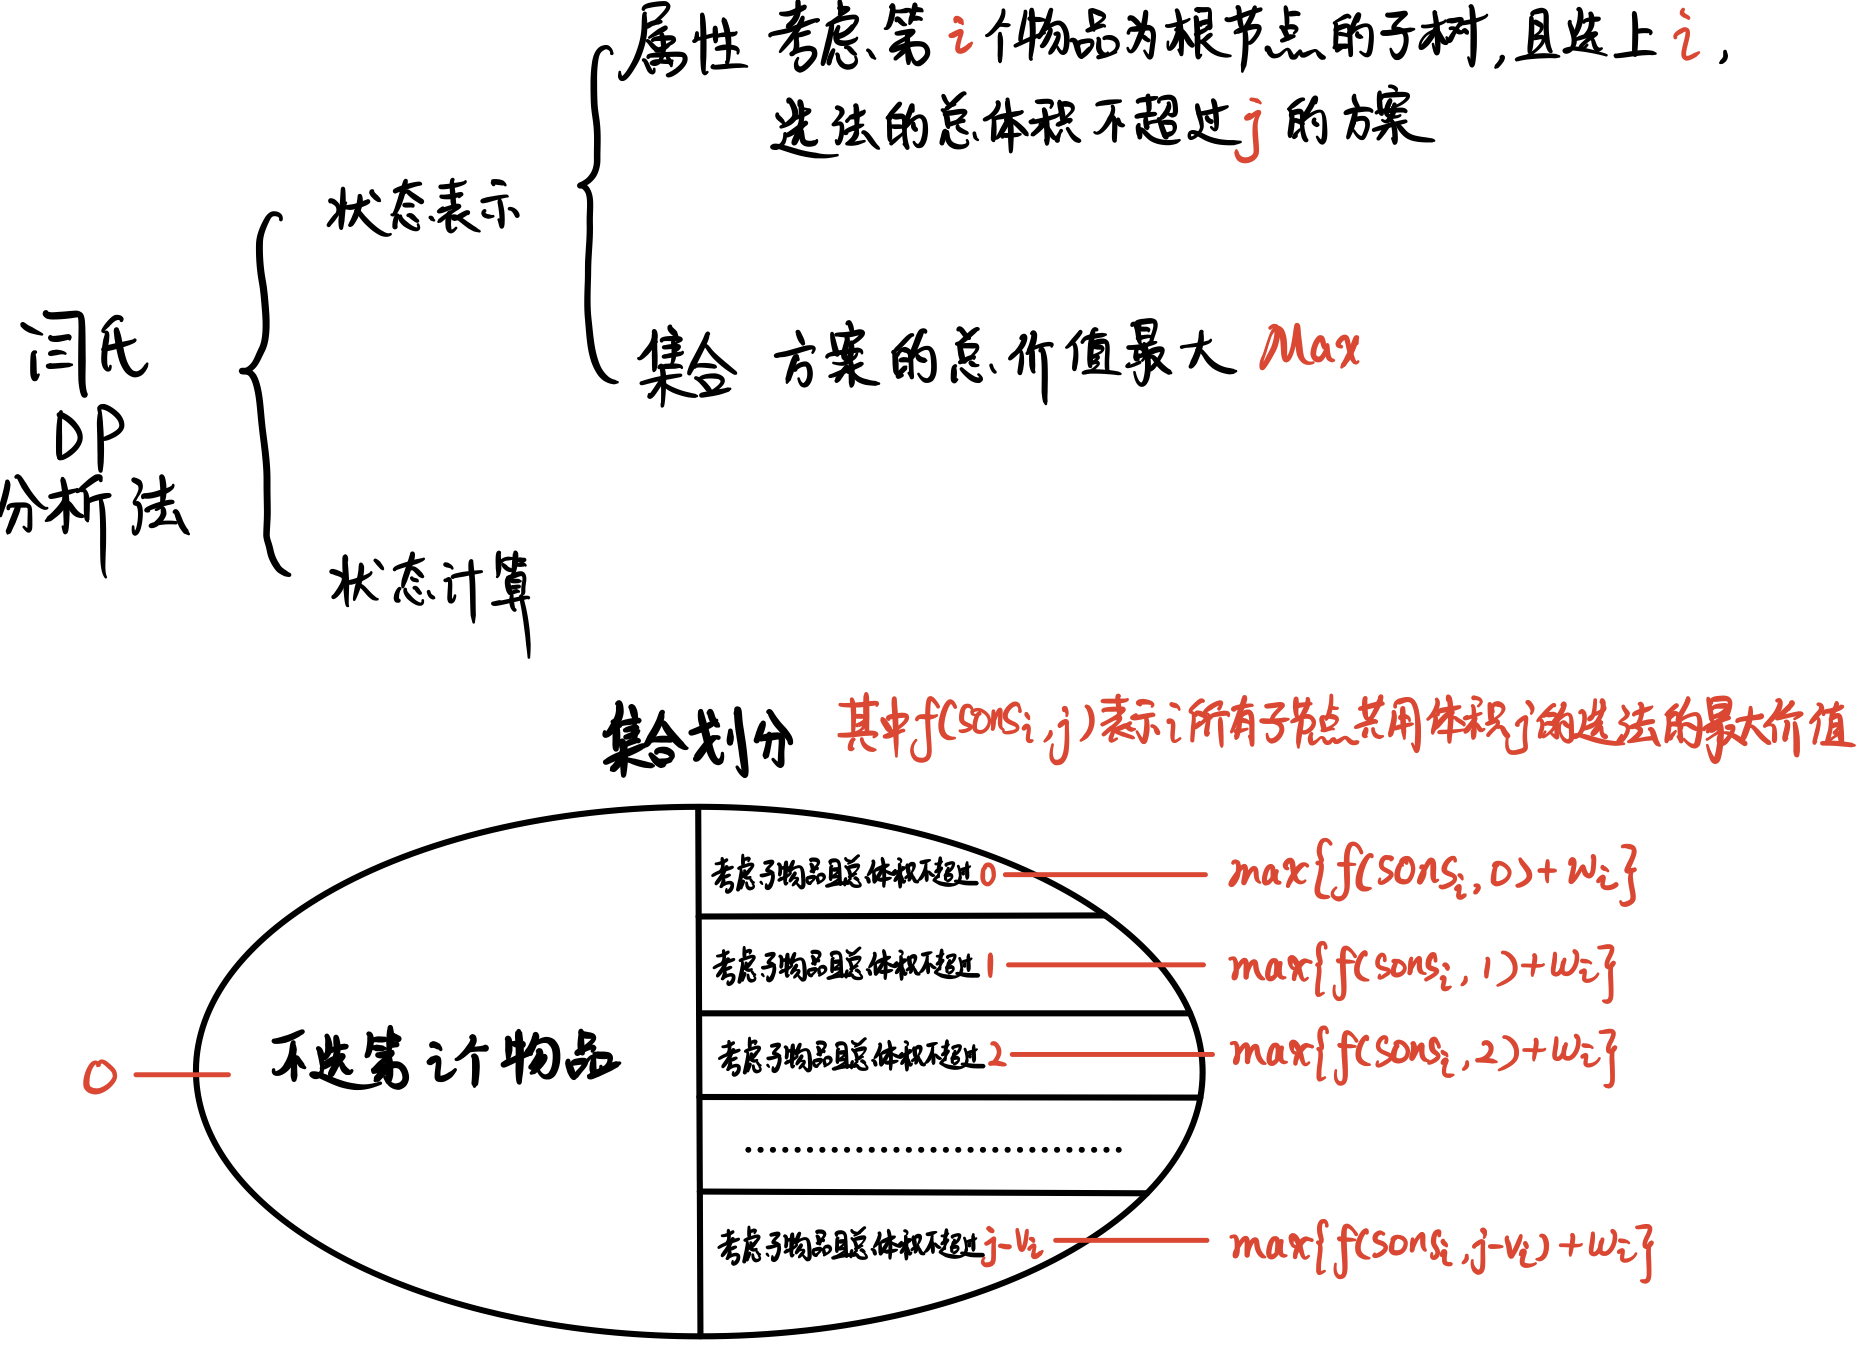 闫氏
DP
分析法
状态表示
属性 考虑第 i 个物品为根节点的子树,且选上 i,
选法的总体积不超过 j 的方案
集合 方案的总价值最大 Max
状态计算
集合划分 其中f(sonsᵢ,j)表示i所有子节点共用体积j的选法的最大价值
0 不选第 i 个物品
考虑子物品且总体积不超过0 max{f(sonsᵢ,0)+wᵢ}
考虑子物品且总体积不超过1 max{f(sonsᵢ,1)+wᵢ}
考虑子物品且总体积不超过2 max{f(sonsᵢ,2)+wᵢ}
................................
考虑子物品且总体积不超过j-vᵢ max{f(sonsᵢ,j-vᵢ)+wᵢ}